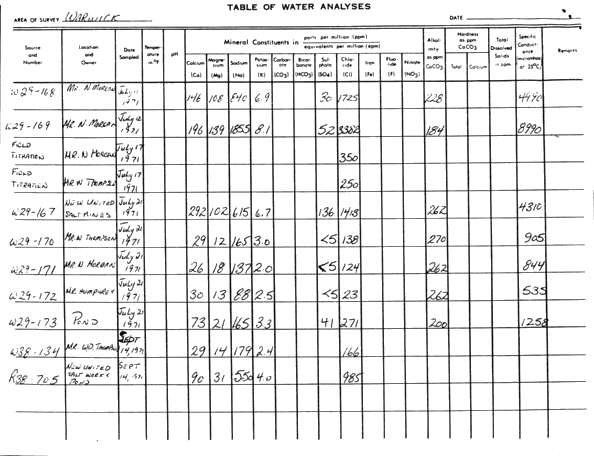 TABLE OF WATER ANALYSES
AREA OF SURVEY WARWICK DATE
Source and Number Location and Owner Date Sampled Temperature in °F pH Mineral Constituents in parts per million (ppm) equivalents per million (epm) Alkalinity as ppm CaCO3 Hardness as ppm CaCO3 Total Dissolved Solids in ppm Specific Conductance (micromhos at 25°C) Remarks
Calcium (Ca) Magnesium (Mg) Sodium (Na) Potassium (K) Carbonate (CO3) Bicarbonate (HCO3) Sulphate (SO4) Chloride (Cl) Iron (Fe) Fluoride (F) Nitrate (NO3) Total Calcium
W29-168 Mr. N Morgan July 1971 146 108 840 6.9 30 1725 228 4490
W29-169 MR. N. MORGAN July 12 1971 196 139 1855 8.1 52 3382 184 8990
FIELD TITRATION MR. N MORGAN July 17 1971 350
FIELD TITRATION MR N THOMPSON July 17 1971 250
W29-167 NEW UNITED SALT MINES July 21 1971 292 102 615 6.7 136 1418 262 4310
W29-170 MR N THOMPSON July 21 1971 29 12 165 3.0 <5 138 270 905
W29-171 MR N MORGAN July 21 1971 26 18 137 2.0 <5 124 262 844
W29-172 MR. HUMPHREY July 21 1971 30 13 88 2.5 <5 23 262 535
W29-173 POND July 21 1971 73 21 165 3.3 41 271 200 1258
W38-134 MR. WD. THOMPSON SEPT 14, 1971 29 14 179 2.4 166
R38-705 NEW UNITED SALT WORKS POND SEPT 14, 90 31 550 4.0 985